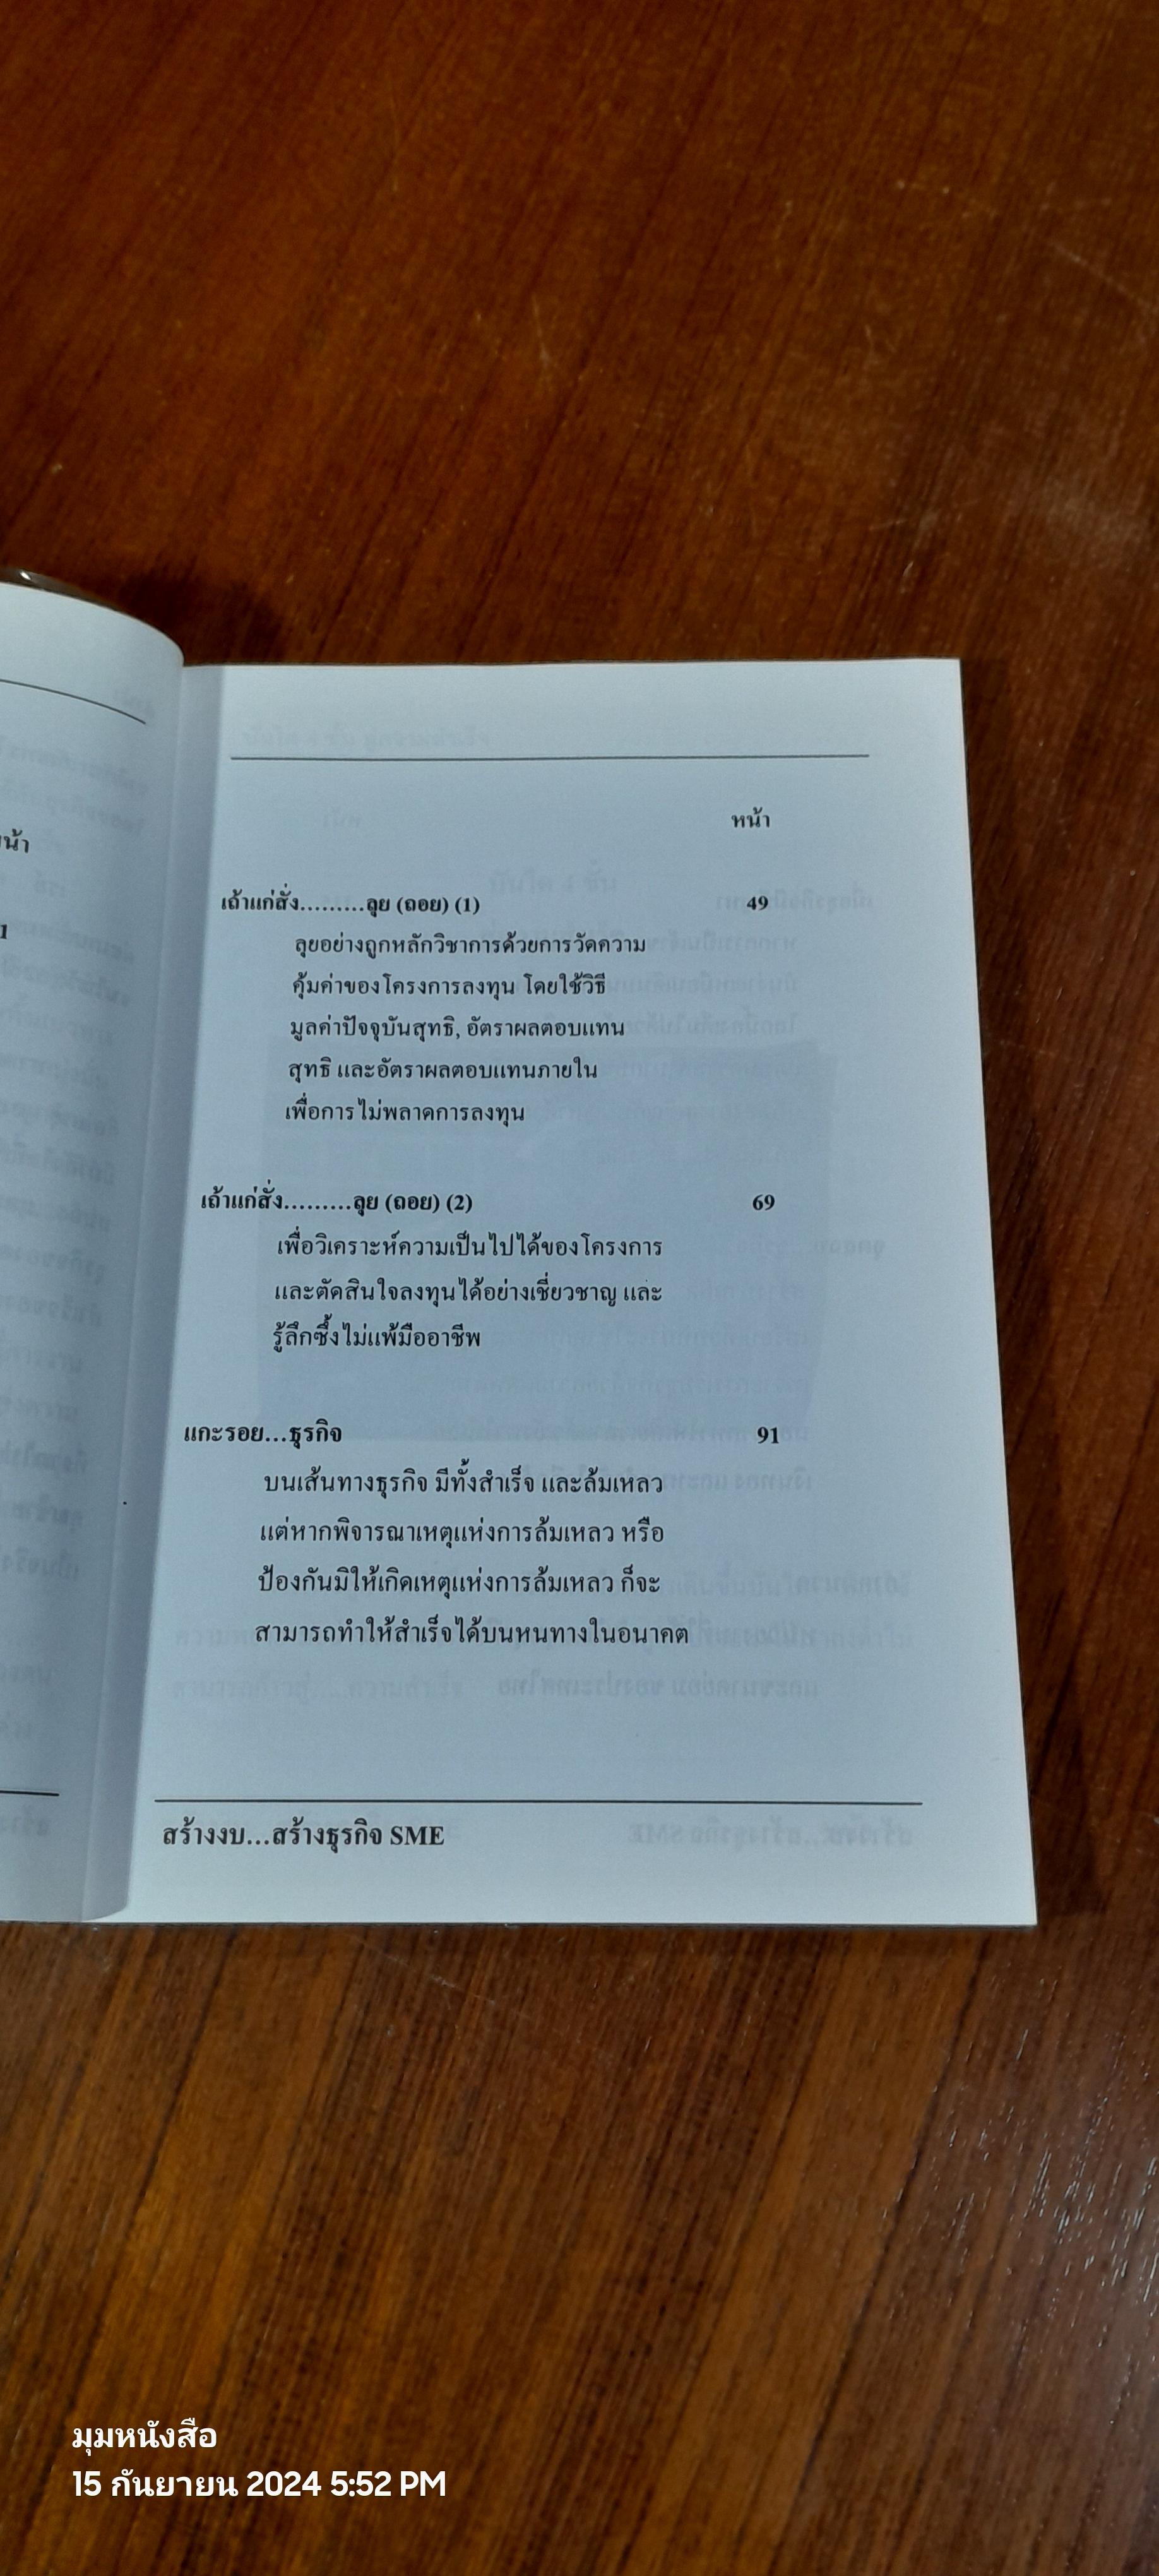 หน้า
เถ้าแก่สั่ง.........ลุย (ถอย) (1) 49
ลุยอย่างถูกหลักวิชาการด้วยการวัดความ
คุ้มค่าของโครงการลงทุน โดยใช้วิธี
มูลค่าปัจจุบันสุทธิ, อัตราผลตอบแทน
สุทธิ และอัตราผลตอบแทนภายใน
เพื่อการไม่พลาดการลงทุน
เถ้าแก่สั่ง.........ลุย (ถอย) (2) 69
เพื่อวิเคราะห์ความเป็นไปได้ของโครงการ
และตัดสินใจลงทุนได้อย่างเชี่ยวชาญ และ
รู้ลึกซึ้งไม่แพ้มืออาชีพ
แกะรอย...ธุรกิจ 91
บนเส้นทางธุรกิจ มีทั้งสำเร็จ และล้มเหลว
แต่หากพิจารณาเหตุแห่งการล้มเหลว หรือ
ป้องกันมิให้เกิดเหตุแห่งการล้มเหลว ก็จะ
สามารถทำให้สำเร็จได้บนหนทางในอนาคต
สร้างงบ...สร้างธุรกิจ SME
มุมหนังสือ
15 กันยายน 2024 5:52 PM